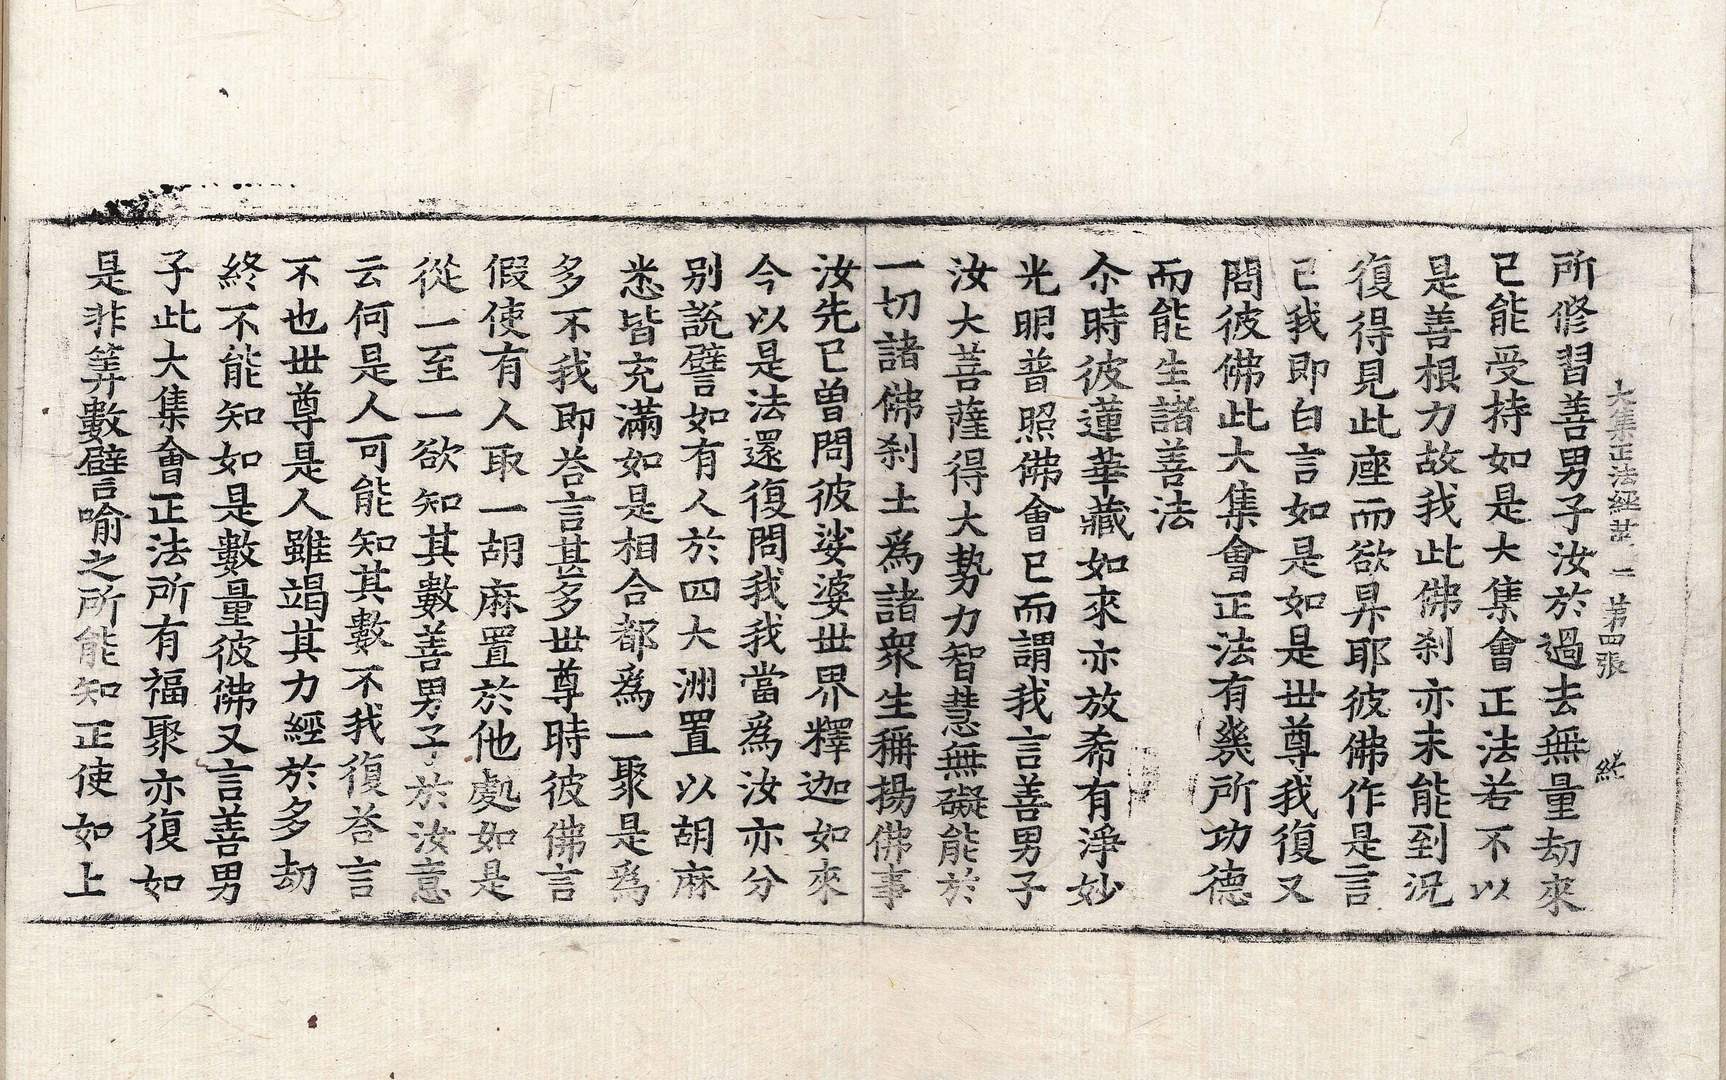 大集正法經苐二 第四張 終
所修習善男子汝於過去無量劫來
已能受持如是大集會正法若不以
是善根力故我此佛刹亦未能到况
復得見此座而欲昇耶彼佛作是言
已我即白言如是如是世尊我復又
問彼佛此大集會正法有幾所功德
而能生諸善法
尒時彼蓮華藏如來亦放希有淨妙
光明普照佛會已而謂我言善男子
汝大菩薩得大勢力智慧無礙能於
一切諸佛刹土爲諸衆生稱揚佛事
汝先已曽問彼娑婆世界釋迦如來
今以是法還復問我我當爲汝亦分
别說譬如有人於四大洲置以胡麻
悉皆充滿如是相合都爲一聚是爲
多不我即荅言甚多世尊時彼佛言
假使有人取一胡麻置於他處如是
從一至一欲知其數善男子於汝意
云何是人可能知其數不我復荅言
不也世尊是人雖竭其力經於多劫
終不能知如是數量彼佛又言善男
子此大集會正法所有福聚亦復如
是非筭數譬喻之所能知正使如上